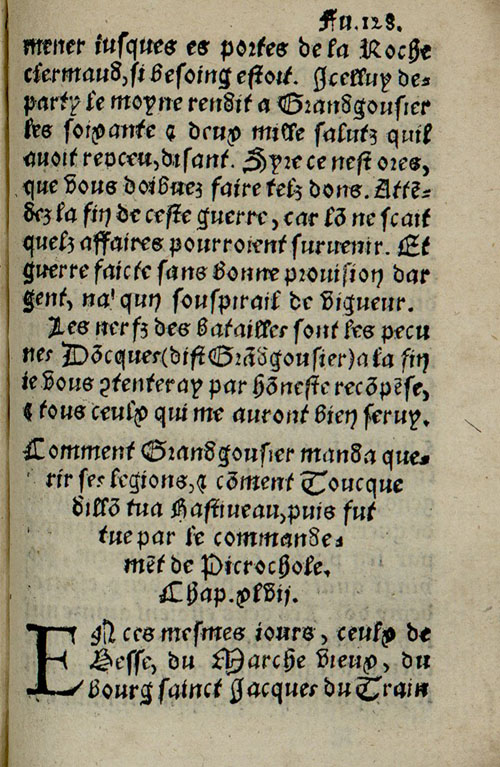 Fu.128.
mener iusques es portes de la Roche
clermaud, si besoing estoit. Icelluy de-
party le moyne rendit a Grandgousier
les soixante ⁊ deux mille salutz quil
auoit repceu, disant. Syre ce nest ores,
que vous doibuez faire telz dons. Attē-
dez la fin de ceste guerre, car lō ne scait
quelz affaires pourroient suruenir. Et
guerre faicte sans bonne prouision dar
gent, na' qun souspirail de vigueur.
Les nerfz des batailles sont les pecu
nes Dōcques (dist Grādgousier) a la fin
ie vous ꝯtenteray par hōneste recōpēse,
⁊ tous ceulx qui me auront bien seruy.
Comment Grandgousier manda que-
rir ses legions, ⁊ cōment Toucque
dillō tua Hastiueau, puis fut
tue par le commande-
mēt de Picrochole.
Chap.xlvij.
EN ces mesmes iours, ceulx de
Besse, du Marche vieux, du
bourg sainct Jacques du Train